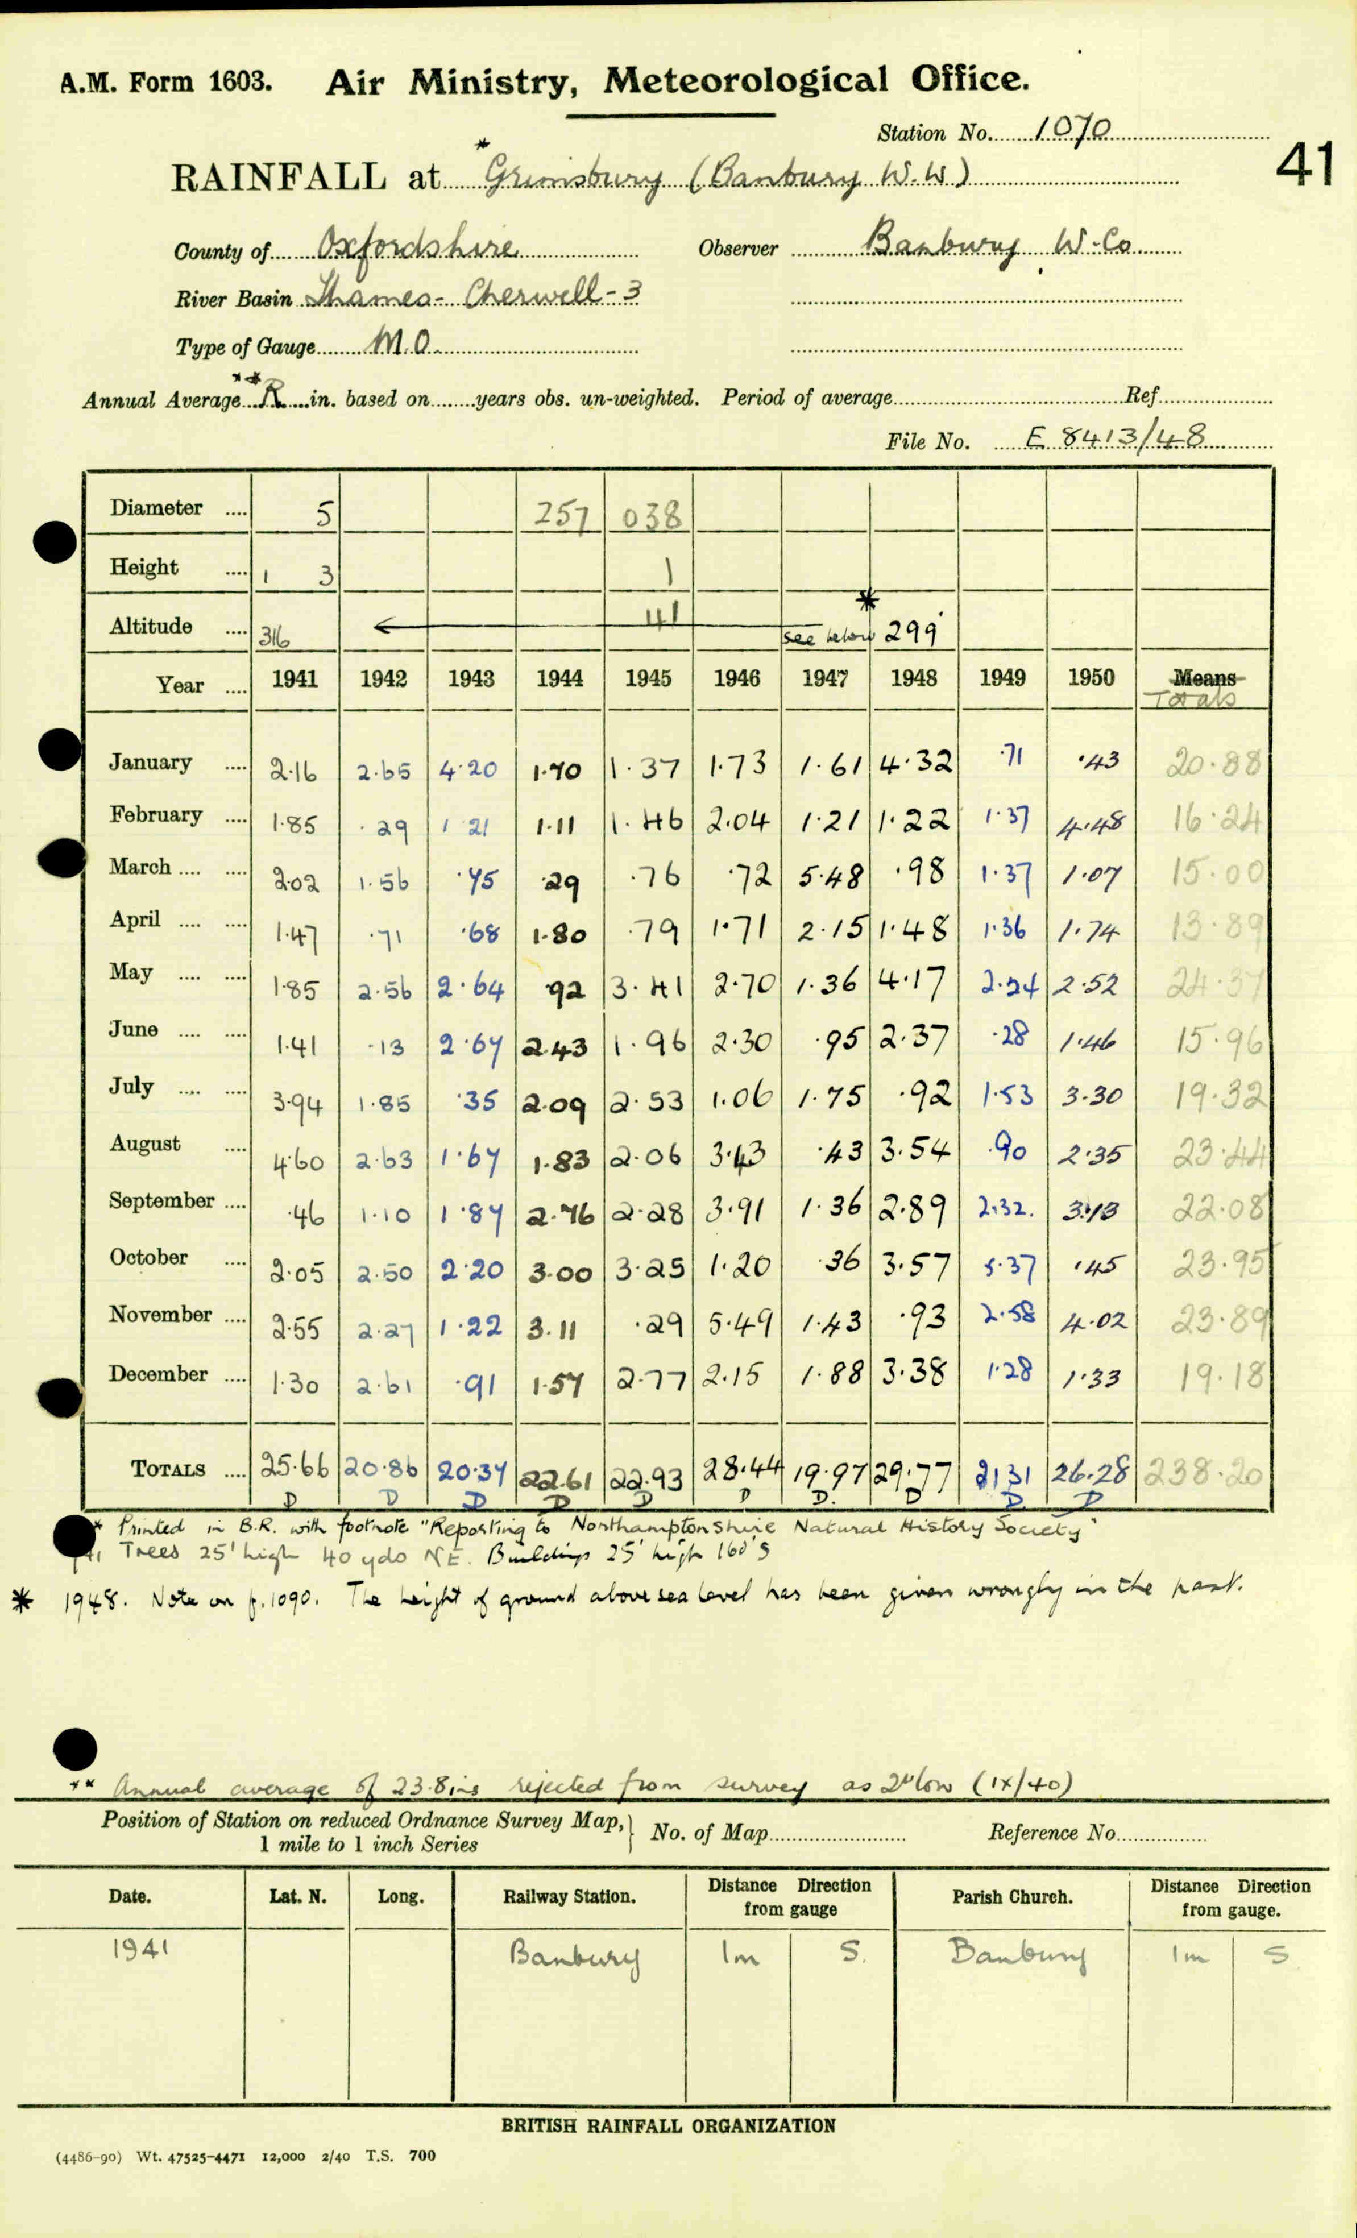 A.M. Form 1603. Air Ministry, Meteorological Office.
Station No. 1070
41
RAINFALL at *Grimsbury (Banbury W.W)
County of Oxfordshire Observer Banbury W.Co.
River Basin Thames - Cherwell - 3
Type of Gauge M.O.
Annual Average **R in. based on years obs. un-weighted. Period of average Ref
File No. E 8413/48
Diameter 5 257 038
Height 1 3 1
Altitude 316 41 see below * 299
Year 1941 1942 1943 1944 1945 1946 1947 1948 1949 1950 Means Totals
January 2.16 2.65 4.20 1.70 1.37 1.73 1.61 4.32 .71 .43 20.88
February 1.85 .29 1 21 1.11 1.46 2.04 1.21 1.22 1.37 4.48 16.24
March 2.02 1.56 .75 .29 .76 .72 5.48 .98 1.37 1.07 15.00
April 1.47 .71 .68 1.80 .79 1.71 2.15 1.48 1.36 1.74 13.89
May 1.85 2.56 2.64 .92 3.41 2.70 1.36 4.17 2.24 2.52 24.37
June 1.41 .13 2.67 2.43 1.96 2.30 .95 2.37 .28 1.46 15.96
July 3.94 1.85 .35 2.09 2.53 1.06 1.75 .92 1.53 3.30 19.32
August 4.60 2.63 1.67 1.83 2.06 3.43 .43 3.54 .90 2.35 23.44
September .46 1.10 1.87 2.76 2.28 3.91 1.36 2.89 2.32. 3.13 22.08
October 2.05 2.50 2.20 3.00 3.25 1.20 .36 3.57 5.37 .45 23.95
November 2.55 2.27 1.22 3.11 .29 5.49 1.43 .93 2.58 4.02 23.89
December 1.30 2.61 .91 1.57 2.77 2.15 1.88 3.38 1.28 1.33 19.18
TOTALS 25.66 20.86 20.37 22.61 22.93 28.44 19.97 29.77 21.31 26.28 238.20
D D D D D D D. D D D
* Printed in B.R. with footnote "Reporting to Northamptonshire Natural History Society"
Trees 25' high 40 yds NE. Buildings 25' high 160' S
* 1948. Note on p.1090. The height of ground above sea level has been given wrongly in the past.
** Annual average of 23.8ins rejected from survey as 2" low (IX/40)
Position of Station on reduced Ordnance Survey Map, 1 mile to 1 inch Series } No. of Map Reference No.
Date. Lat. N. Long. Railway Station. Distance Direction from gauge Parish Church. Distance Direction from gauge.
1941 Banbury 1m S. Banbury 1m S
BRITISH RAINFALL ORGANIZATION
(4486-90) Wt. 47525-4471 12,000 2/40 T.S. 700